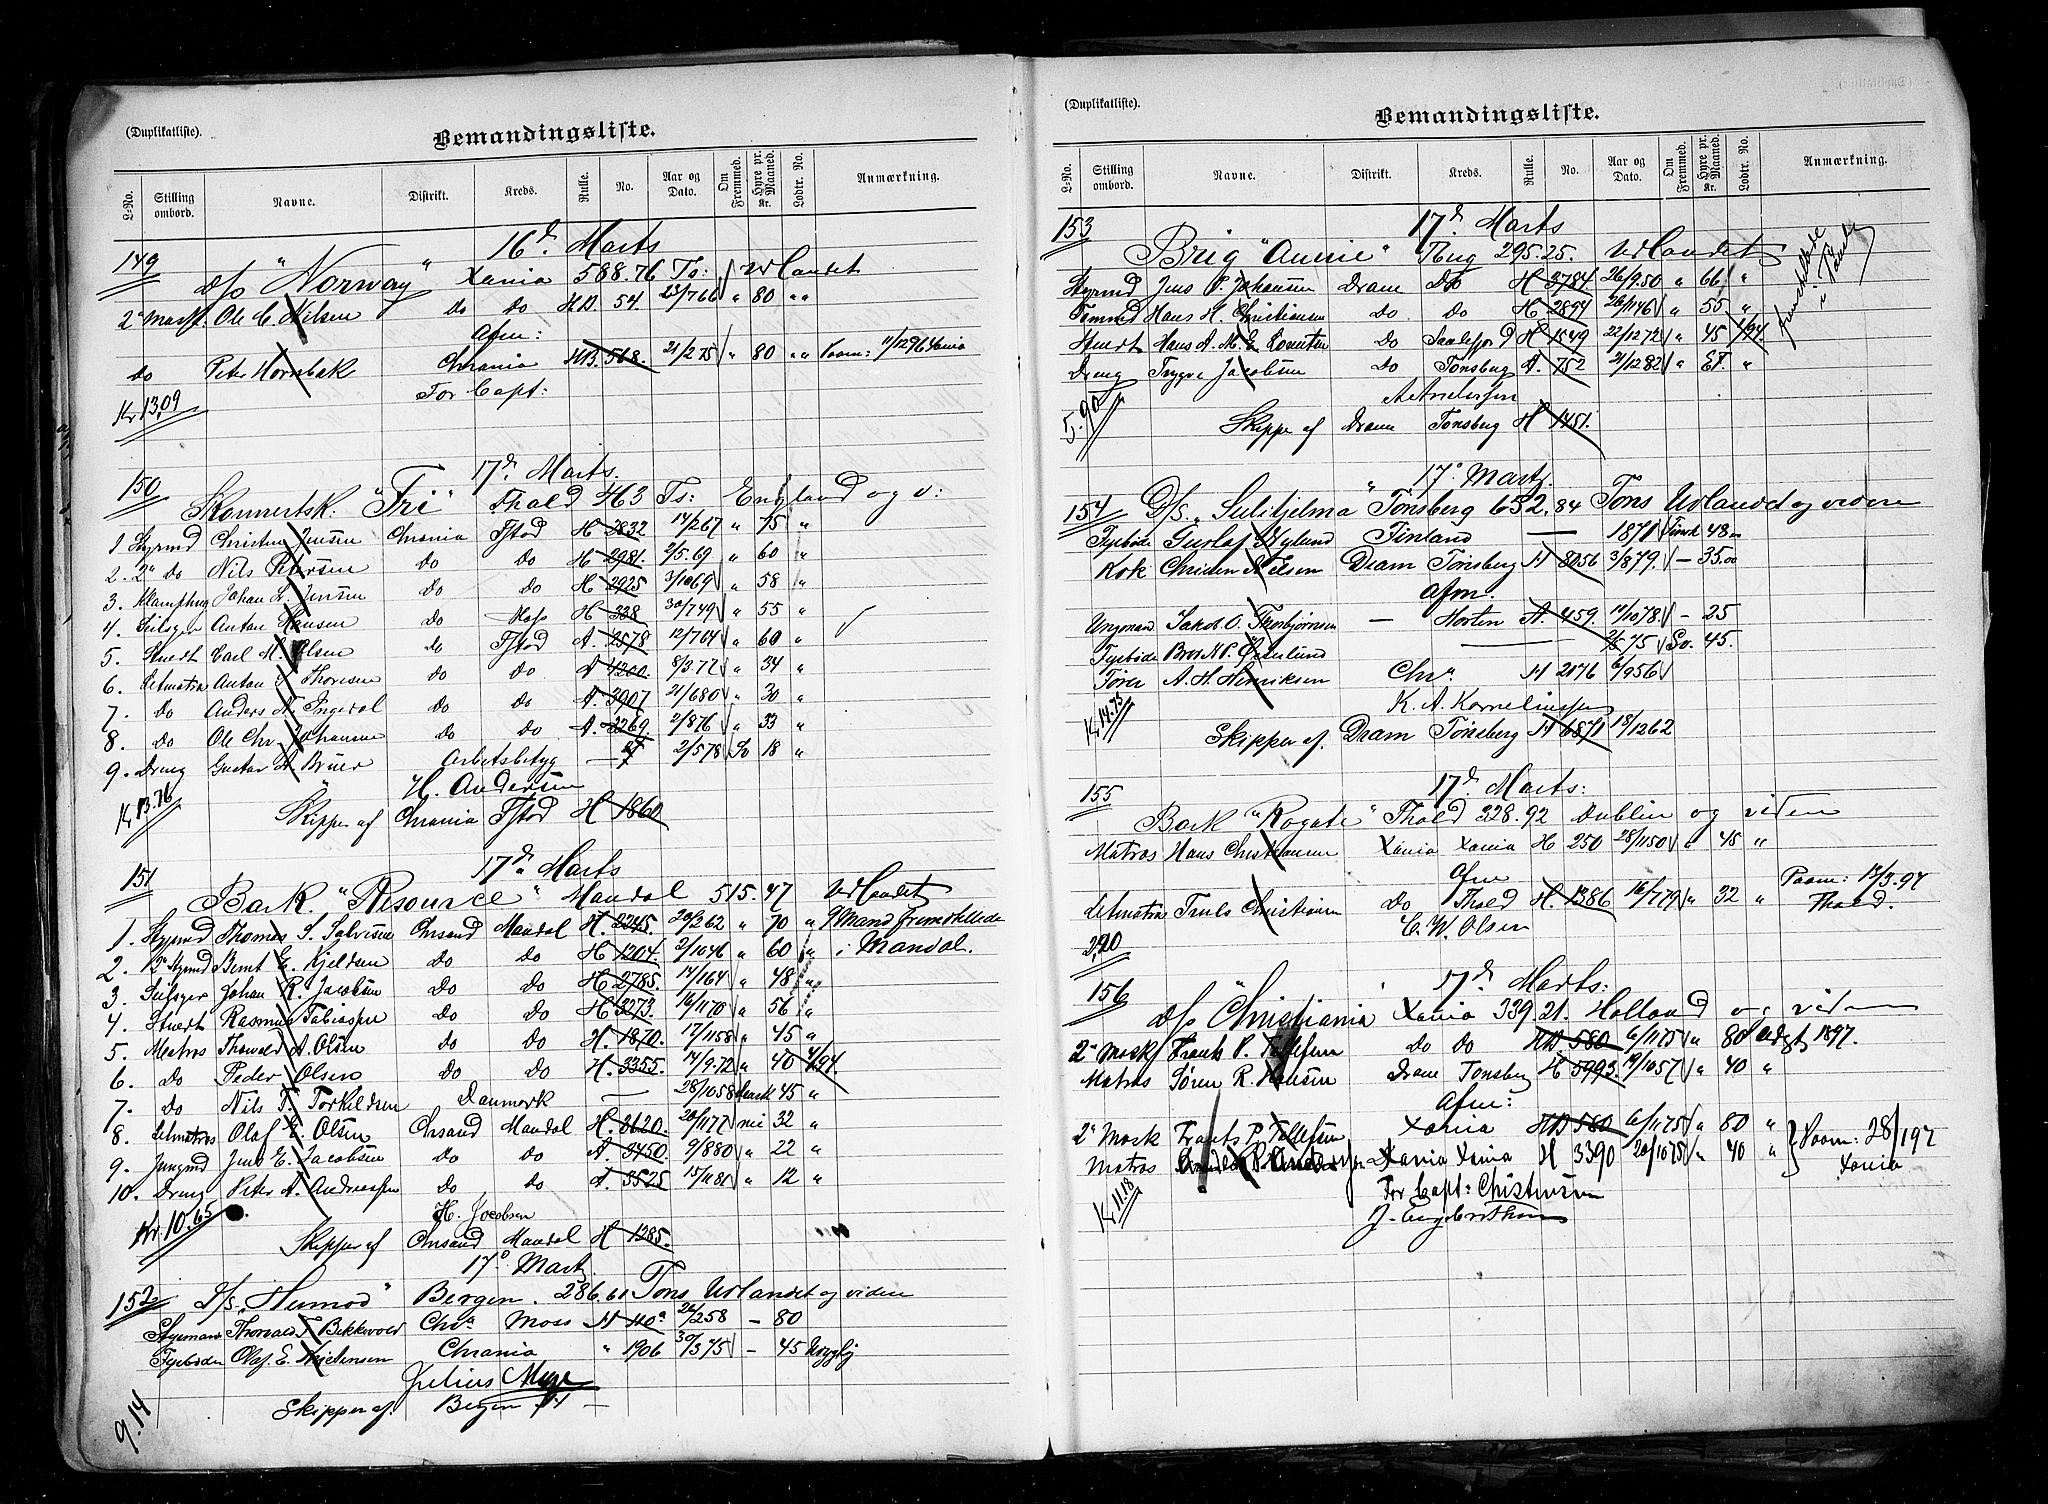 (Duplikatliste).
Bemandingsliste.
L-No. Stilling ombord. Navne. Distrikt. Kreds. Rulle. No. Aar og Dato. Om Fremmed. Hyre pr. Maaned. Kr. Lodtr. No. Anmærkning.
16d Marts
149 d/s "Norway" Xania 588.76 Ts: Udlandet
2n Mask. Ole C. Nilsen Do Do HD. 54. 23/7 66 " 80 "
Afm:
Do Peter Hornbæk Chrania HB. 568. 21/2 75 " 80 " Paam: 11/12 96 Xania
For Capt:
Kr 13,09
17d Marts.
150 Skonnertsk. "Fri" Fhald 463 Ts: England og v:
1 Styrmd Christen Jensen Chrania Fstad H 2832 14/2 67 " 75 "
2. 2n do Nils Do Do H 2981. 2/5 69 " 60 "
3. Johan L. Jensen Do Do H 2925 3/10 69 " 58 "
4. Seilsger Anton Hansen Do Moss H 338 30/7 49 " 55 "
5. Stuert Carl M. Olsen do Fstad A. 2578 12/7 64 " 60 "
6. Letmatros Anton Thoresen Do Do A 4200. 8/3 72 " 34 "
7. Do Anders N. Ingedal Do Do A. 3907 21/6 80 " 30 "
8. Do Ole Chr. Johansen Do Do A. 3269. 2/8 76 " 33 "
9. Dreng Gustav A. Bruer Arbetsbetyg — 2/5 78 Sv 18 "
H. Andersen
Kr 13.76
Skipper af Chrania Fstad H 1860
17d Marts
151 Bark. "Resource" Mandal 515.47 Udlandet
1. Styrmd Thomas S. Salvesen Chrsand Mandal H. 2245. 20/3 62 " 70 " 9 Mand fremstillede
2. 2n Styrmd Bernt E. Kjeldsen Do Do H 1204. 2/10 46 " 60 " i Mandal.
3. Seilsger Johan R. Jacobsen Do Do H 2785. 14/1 64 " 48 "
4. Stuert Rasmus Tobiassen Do Do H 3273. 16/11 70 " 56 "
5. Matros Thorvald A. Olsen Do Do H. 1870. 17/11 58 " 45 "
6. Do Peder Olsen Do Do H. 3355. 14/9 72 " 40 4/94.
7. Do Nils T. Torkildsen Danmark — 28/10 58 Dansk 45 "
8. Letmatros Olaf E. Olsen Chrsand Mandal H. 3620. 20/11 77 nei 32 "
9. Jungmd Jens E. Jacobsen Do Do A. 3450. 9/8 80 " 22 "
10. Dreng Peter A. Andreassen Do Do A 3525 15/11 81 " 12 "
Kr 10.65
H. Jacobsen
Skipper af Chrsand Mandal H 1285.
17d Marts
152 D/s. "Humod" Bergen. 286.61 Tons Udlandet og videre
Styrmand Thorvald T. Bekkevold Chra Moss H 110a 26/2 58 – 80
Fyrbøder Olaf E. Mortensen Chrania " 1906 30/3 75 – 45
Julius Meyer
Skipper af. Bergen
9.14
(Duplikatliste).
Bemandingsliste.
L-No. Stilling ombord. Navne. Distrikt. Kreds. Rulle. No. Aar og Dato. Om Fremmed. Hyre pr. Maaned. Kr. Lodtr. No. Anmærkning.
153 17d Marts
Brig "Aunie" Tbug 295.25. Udlandet
Styrmd Jens P. Johansen Dram Do H 3784. 26/9 50 " 66 "
Tømmd Hans H. Christiansen Do Do H 2894 26/1 46 " 55 "
Stuert Hans A. M. E. Do Sandefjord H 1549 22/12 72 " 45 1/94.
Dreng Trygve Jacobsen Do Tønsberg A. 752 2/12 82 " "
fremstillede i
A Andersen
5.90
Skipper af Dram Tønsberg H 1451.
17d Marts
154 D/s. "Sulitjelma" Tønsberg 652.84 Tons Udlandet og videre
Fyrbøder Gustaf Nylund Finland — 1871 Finsk 48.00
Kok Christen Nilsen Dram Tønsberg H 8056 3/8 79. – 35.00
Afm.
Ungmand Jakob O. Thorbjørnsen – Horten A. 459. 11/10 78 – 25
Fyrbøder Bror A. P. Österlund — 75 Sv. 45.
Fører A. H. Henriksen Chra H 2076 6/9 56
K. A. Kornelinssen
Kr 14.73
Skipper af. Dram Tønsberg H 6871 18/12 62
155 17d Marts:
Bark "Rogate" Fhald 328.92 Dublin og videre
Matros Hans Christiansen Xania Xania H 250 28/11 50 " 45 "
Afm
Letmatros Truls Christiansen Do Fhald H. 1386 16/1 79 " 32 " Paam: 17/3.97 Fhald.
C. W. Olsen
2,20
156 17d Marts:
d/s "Christiania" Xania 339.21. Holland og viden
2n Mask Frants P. Tollefsen Do Do HD 580 6/11 75 " 80 Sidst 1897.
Matros Søren R. Hansen Dram Tønsberg H 5993. 19/10 57 " 40 "
Afm:
2n Mask Frants P. Tollefsen Xania HD 580 6/11 75 " 80 "
Matros Xania Xania H 3390 20/10 75 " 40 " Paam: 28/1 97 Xania
Kr 11.18
For Capt: Christensen
J. Engebrethsen